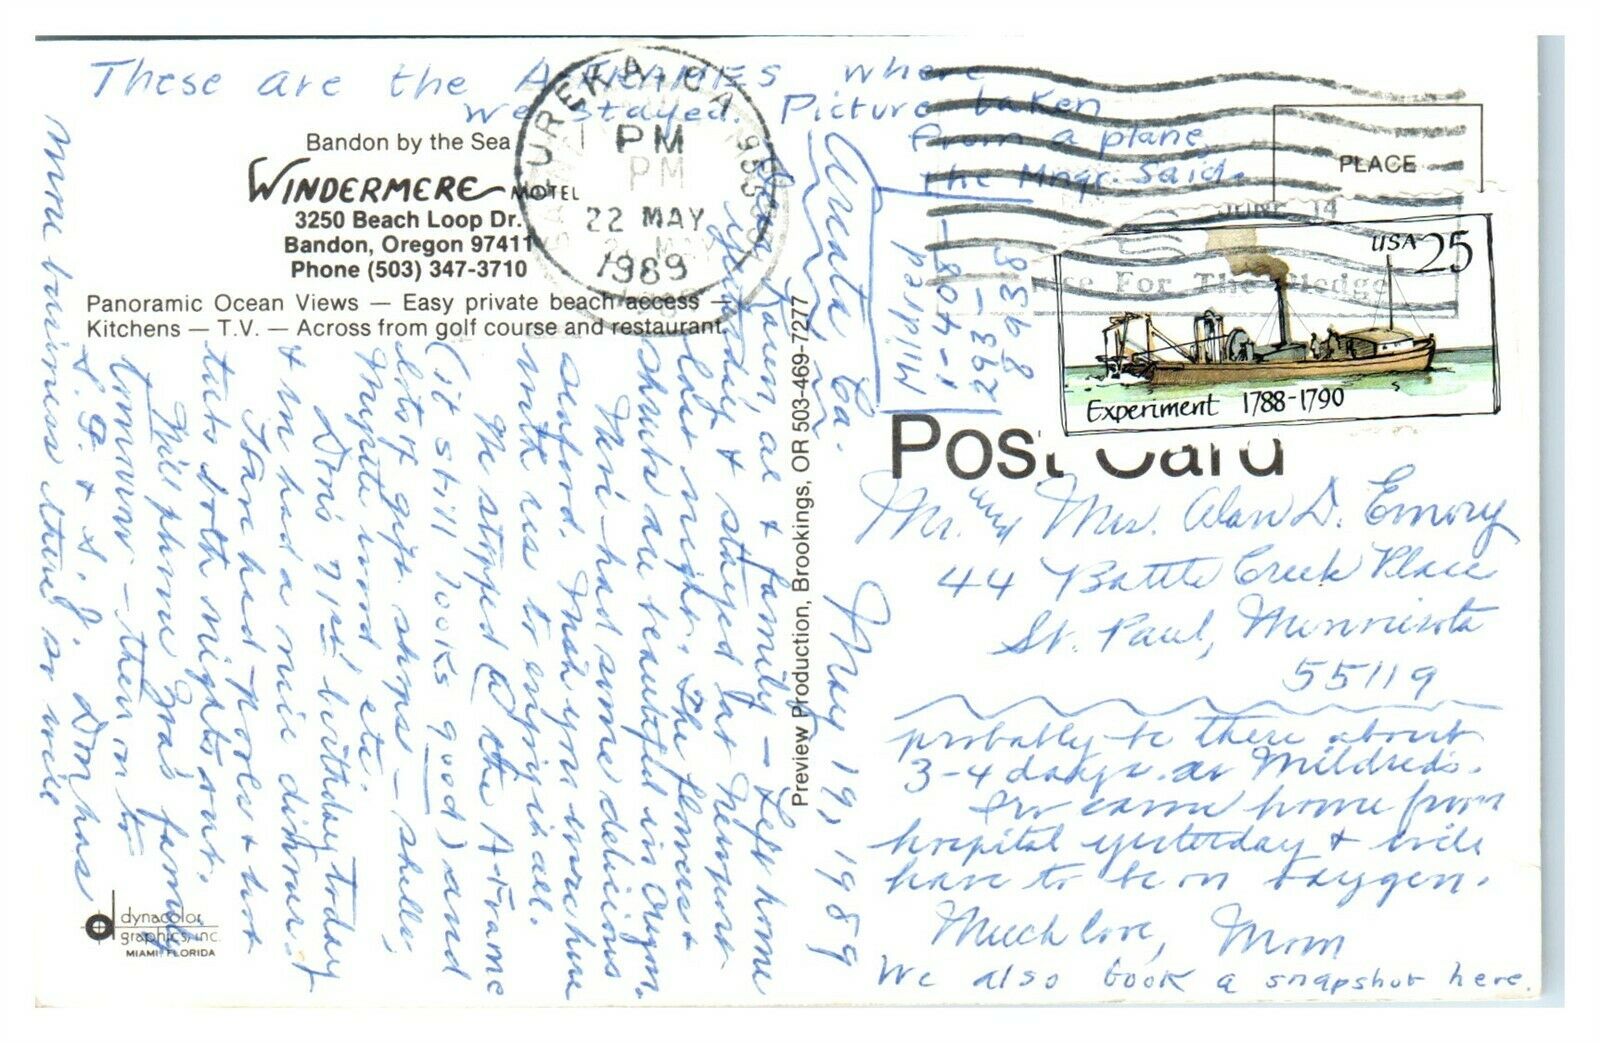 These are the A-FRAMES where
we stayed. Picture taken
from a plane,
the Mngr. said.
Bandon by the Sea
WINDERMERE MOTEL
3250 Beach Loop Dr.
Bandon, Oregon 97411
Phone (503) 347-3710
Panoramic Ocean Views — Easy private beach access —
Kitchens — T.V. — Across from golf course and restaurant.
EUREKA, CA 955
PM
22 MAY
1989
PLACE
JUNE 14
For The Pledge
USA 25
Experiment 1788-1790
Post Card
Arcata, Ca.
May 19, 1989
Millpred
1-408-
293-
8938
Dear Karen, al & family – Left home
yesterday & stayed at Newport
last night. The flowers &
shrubs are beautiful in Oregon.
Mmm – had some delicious
seafood. Wish you were here
with us to enjoy it all.
We stopped @ the A-Frame
(it still looks good) and
lots of gift shops – shells,
myrtle wood etc.
Doris 71st birthday today
& we had a nice dinner.
Tom had pools & hot
tubs both nights out.
Will phone Ira's family
tomorrow – then on to
S. F. & S. J. Don has
some business there so we'll
Preview Production, Brookings, OR 503-469-7277
Mr. and Mrs. Alan D. Emory
44 Battle Creek Place
St. Paul, Minnesota
55119
probably be there about
3-4 days at Mildred's.
Ira came home from
hospital yesterday & will
have to be on oxygen.
Much love, Mom
We also took a snapshot here.
dynacolor
graphics, inc.
MIAMI, FLORIDA